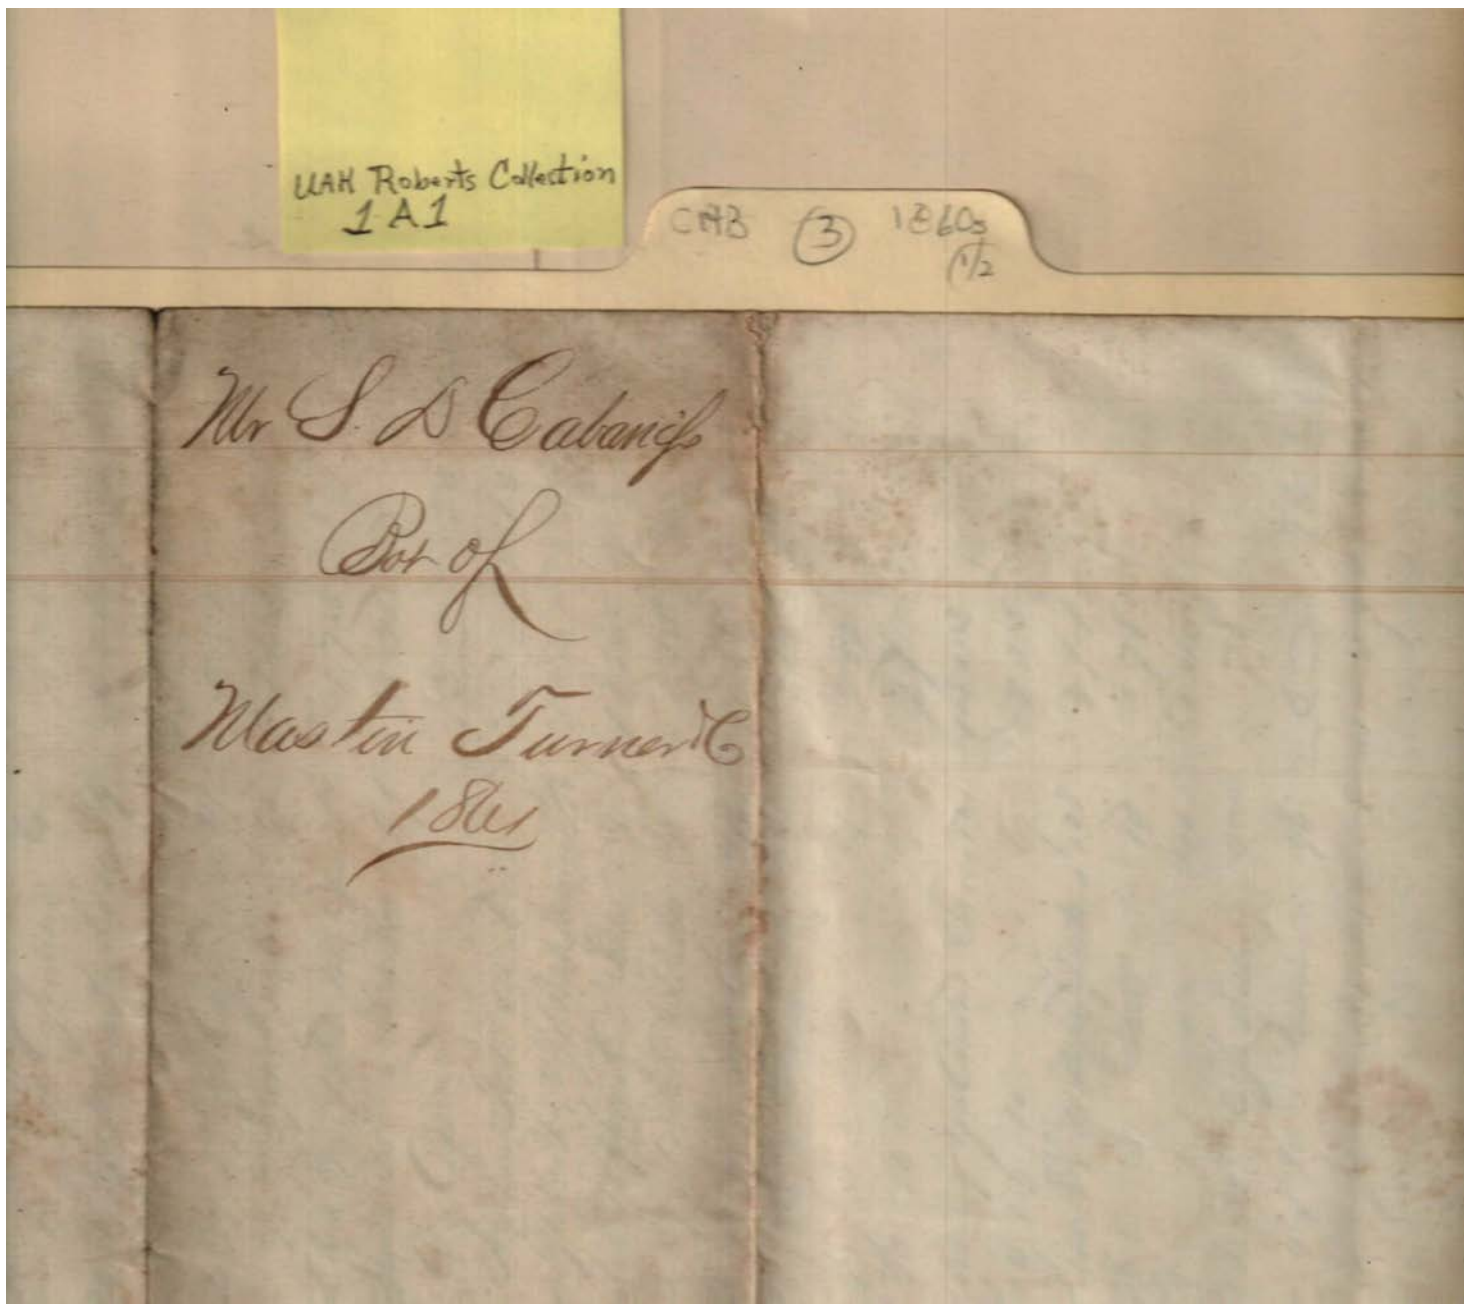 UAH Roberts Collection
1A1
CAB 3 1860s
1/2
Mr S. D Cabaniss
Bot of
Mastin Turner & C
1861